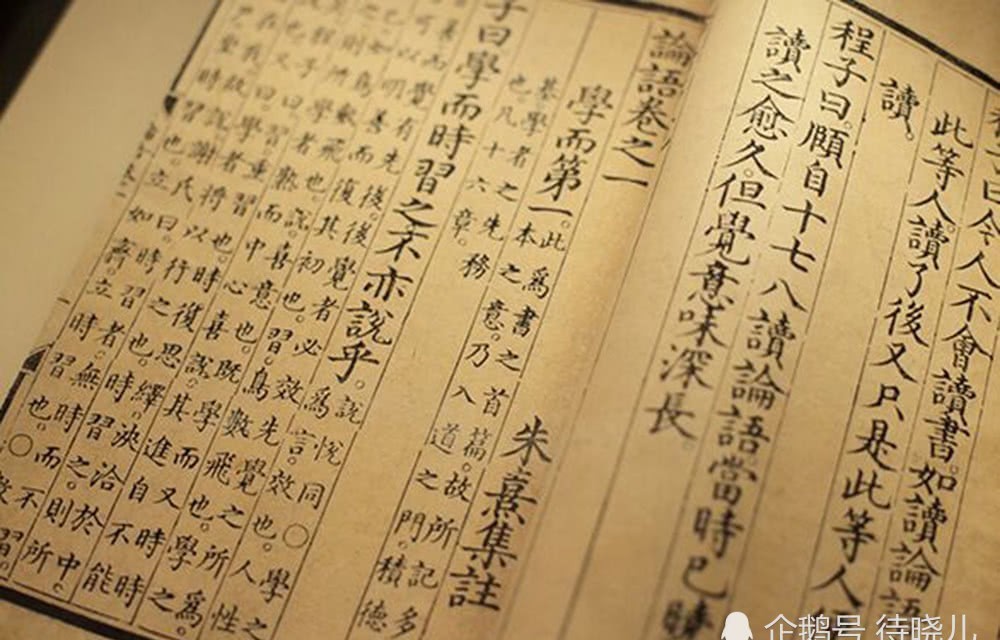 子曰今人不會讀書。如讀論語
此等人。讀了後又只是此等人
讀。
程子曰。頤自十七八讀論語。當時已曉
讀之愈久。但覺意味深長。
論語卷之一
朱熹集註
學而第一。
此爲書之首篇。故所記多
本之意。乃入道之門。積德
基學者之先務
也凡十六章。
子曰學而時習之不亦說乎。
說悅同○學之
爲言效也。人性
善而覺有先後。後覺者必效先覺之所爲
可以明善而復其初也。習鳥數飛也。學之
如鳥數飛也。說喜意也。既學而又時時
則所學者熟。而中心喜說。其進自不能
子曰。習重習也。時復思繹。浹洽於中。
又曰。學者將以行之也。時習之。則所
在我。故說。謝氏曰。時習者。無時而不習。
坐時習也。立如齊。立時習也。○
企鹅号 待晓儿